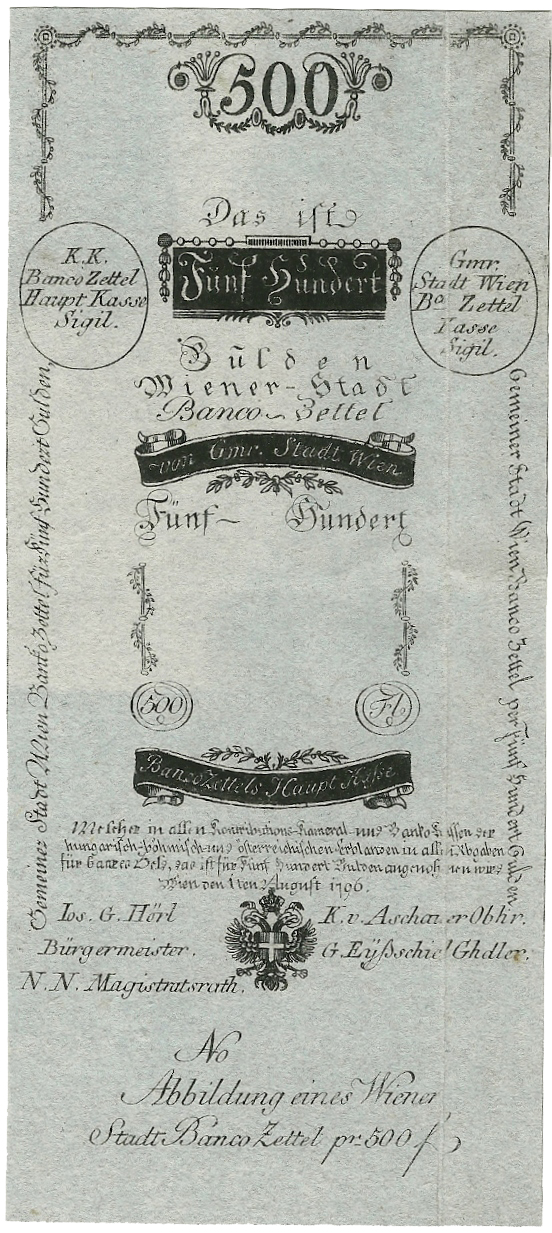 500
Das ist
Fünf Hundert
K.K.
Banco Zettel
Haupt Kasse
Sigil.
Gmr.
Stadt Wien
Bo Zettel
Kasse
Sigil.
Gulden
Wiener-Stadt
Banco-Zettel
von Gmr. Stadt Wien
Fünf- Hundert
500
Fl
Banco Zettels Haupt Kasse
Gemeiner Stadt Wien Banko Zettel für Fünf Hundert Gulden,
Gemeiner Stadt Wien Banco Zettel per Fünf Hundert Gulden
Welcher in allen Kontributions-Kameral-und Banko Kassen der
hungarisch-böhmisch-und österreichischen Erblanden in allen Abgaben
für bares Geld, das ist für Fünf Hundert Gulden angenohmen wird
Wien den 1ten August 1796.
Ios. G. Hörl
Bürgermeister.
N. N. Magistratsrath.
K. v. Aschauer Obhr.
G. Eÿßschiel Ghdler.
No
Abbildung eines Wiener
Stadt Banco Zettel pr. 500 f